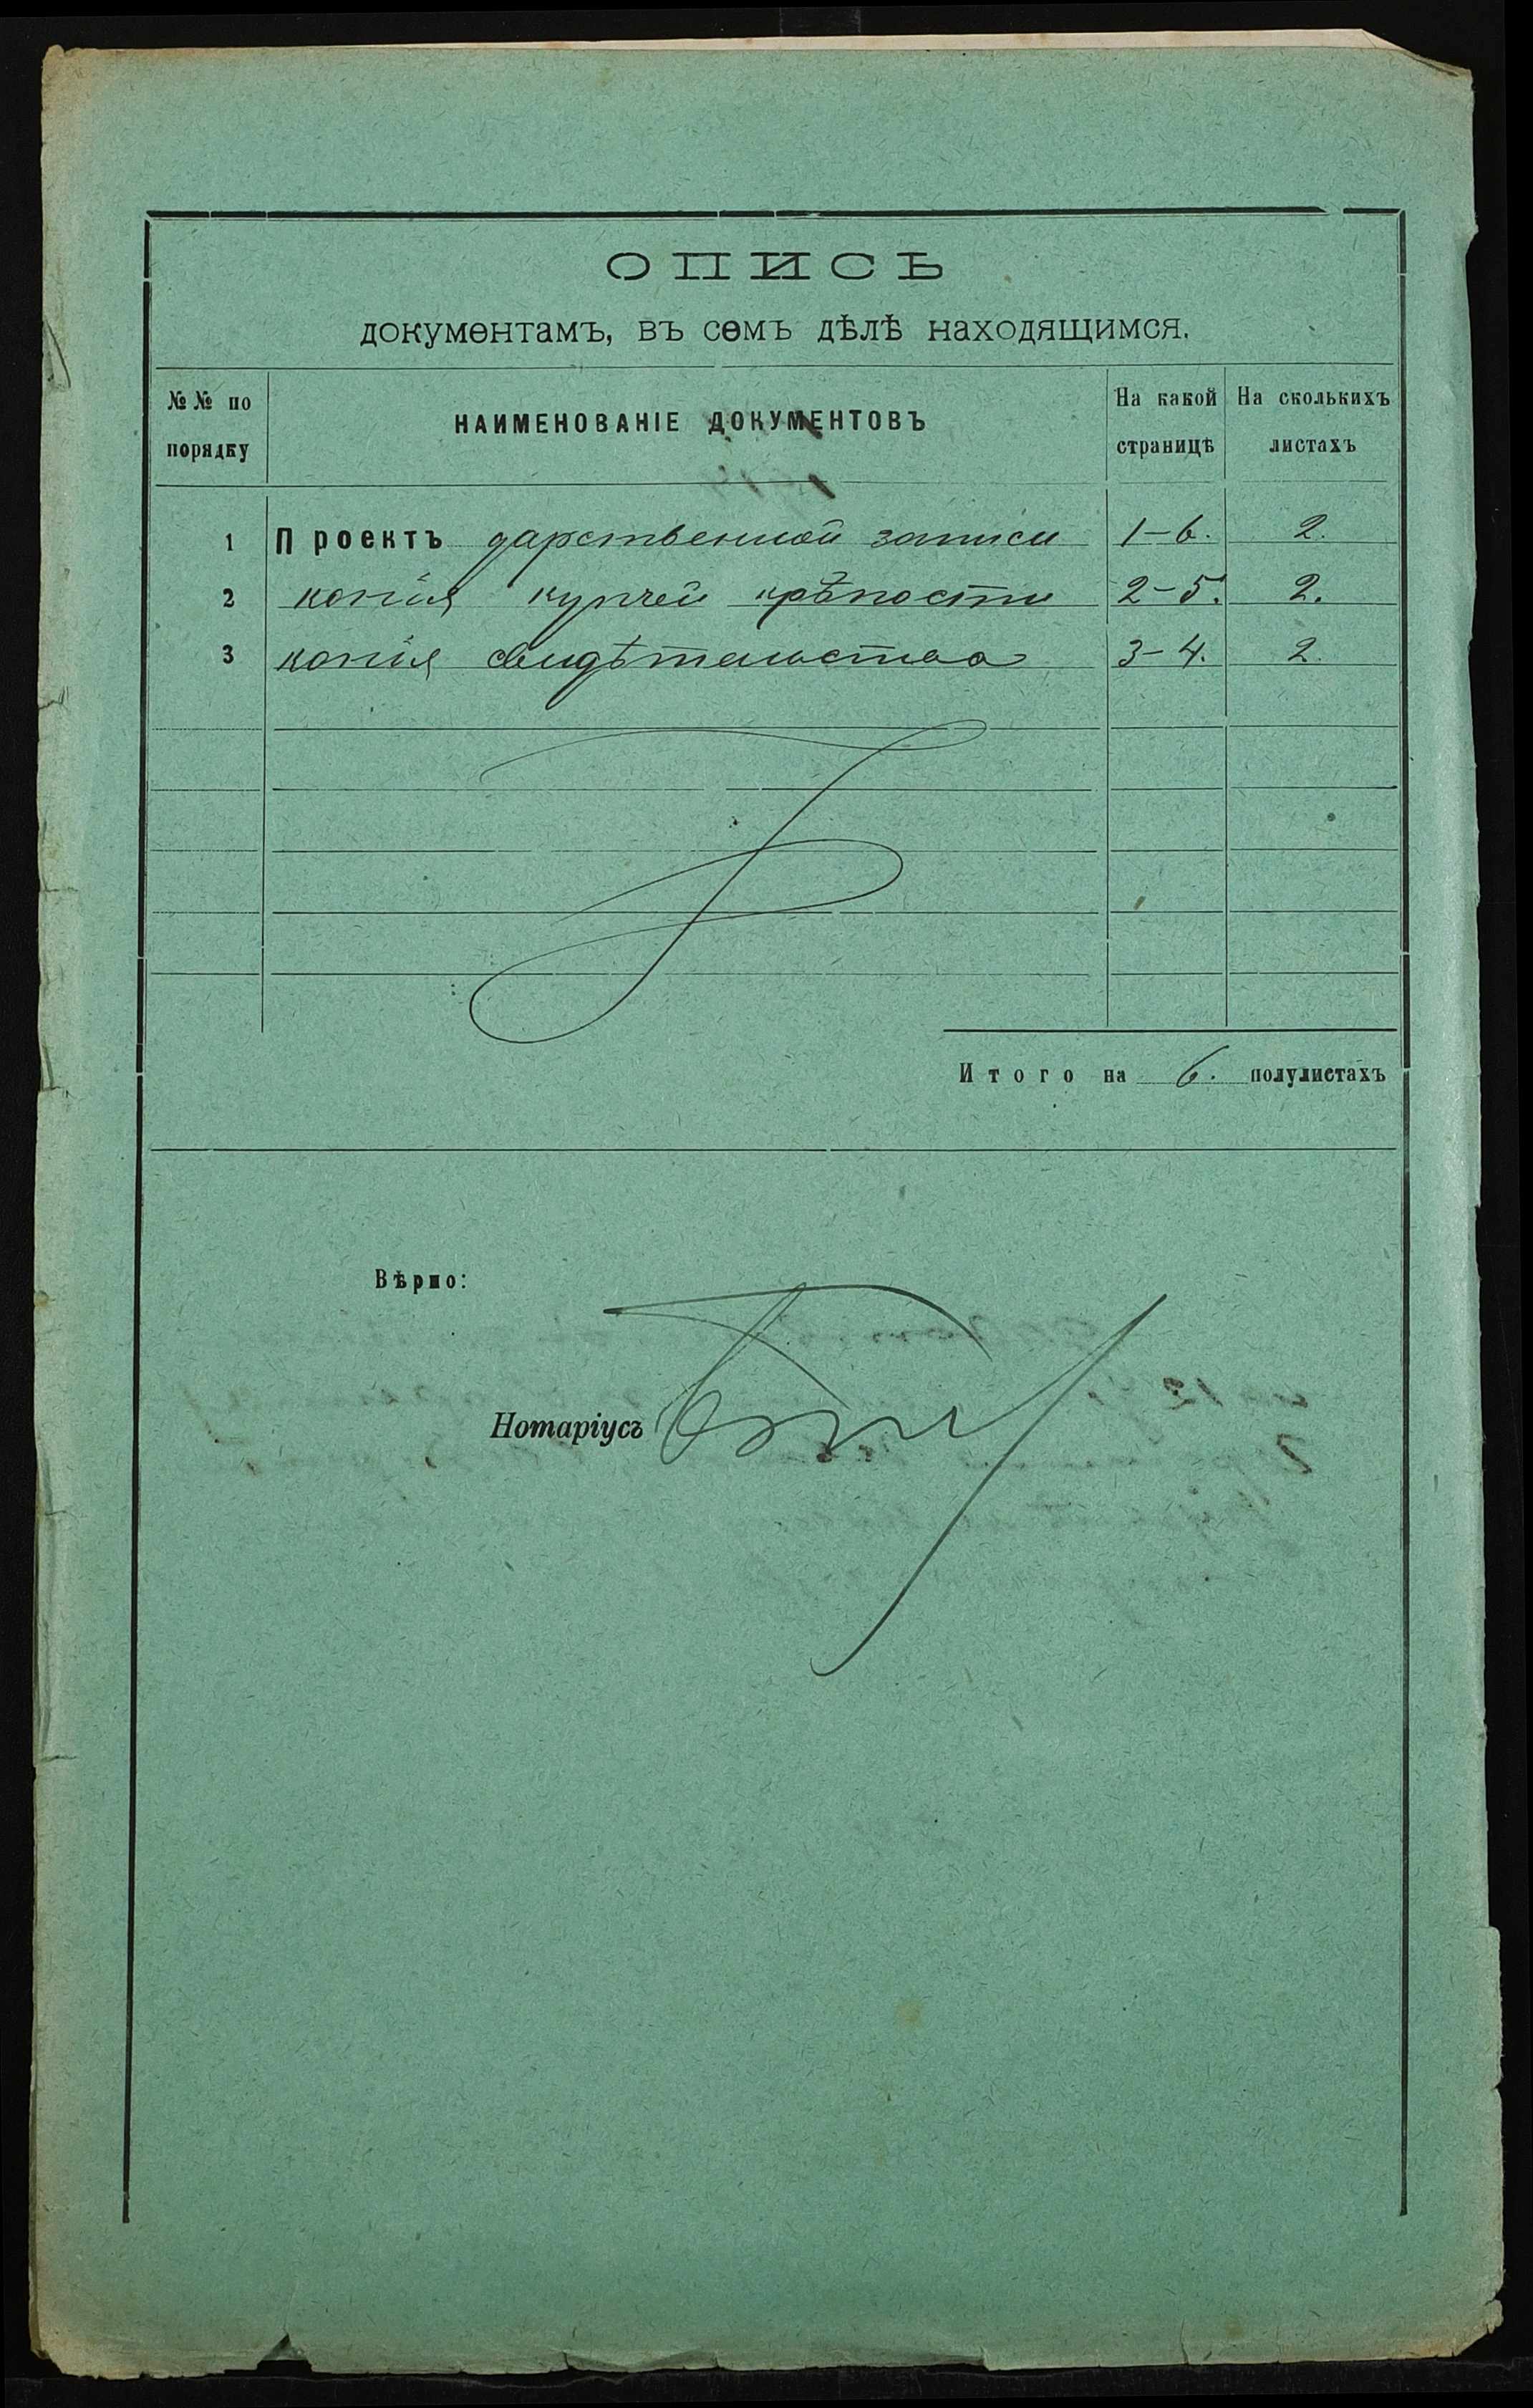 ОПИСЬ
документамъ, въ семъ дѣлѣ находящимся.
№№ по порядку
НАИМЕНОВАНІЕ ДОКУМЕНТОВЪ
На какой страницѣ
На сколькихъ листахъ
1 Проектъ дарственной записи 1-6. 2.
2 копія купчей крѣпости 2-5. 2.
3 копія свидѣтельства 3-4. 2.
Итого на 6. полулистахъ
Вѣрно:
Нотаріусъ